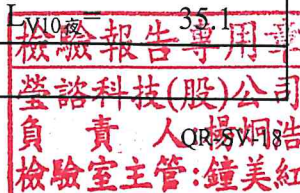 V10夜 35.1
檢驗報告專用章
瑩諮科技(股)公司
負責人:楊炯浩
QR-SV-18
檢驗室主管:鐘美紅